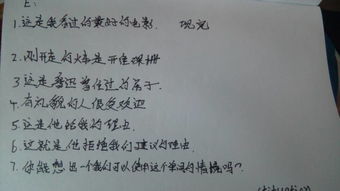 上:
1.这是我看过的最好的电影. 现完
2.刚开走的火车是开往深圳
3这是鲁迅曾住过的房子.
4.有礼貌的人很受欢迎
5.这是他给我的理由.
6.这就是他拒绝我们建议的理由.
7.你能想出一个我们可以使用这个单词的情境吗?